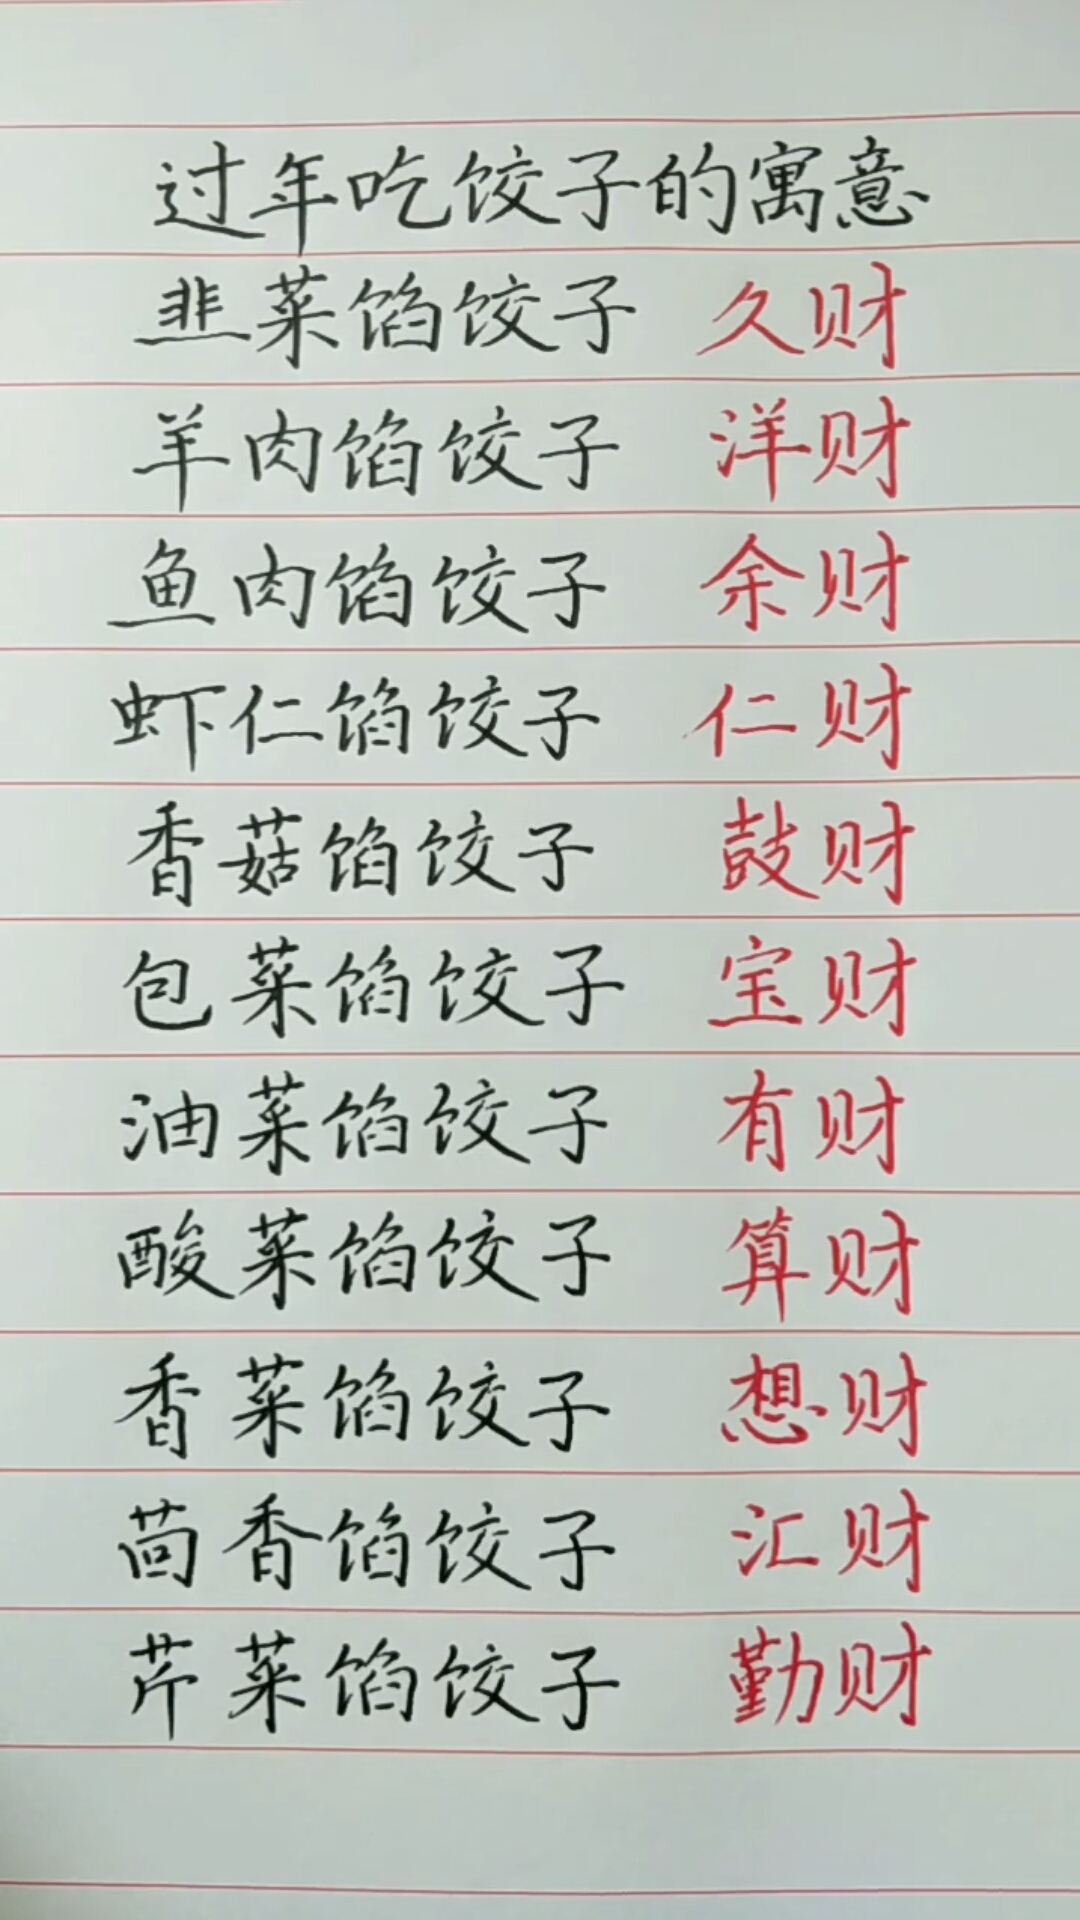 过年吃饺子的寓意
韭菜馅饺子 久财
羊肉馅饺子 洋财
鱼肉馅饺子 余财
虾仁馅饺子 仁财
香菇馅饺子 鼓财
包菜馅饺子 宝财
油菜馅饺子 有财
酸菜馅饺子 算财
香菜馅饺子 想财
茴香馅饺子 汇财
芹菜馅饺子 勤财